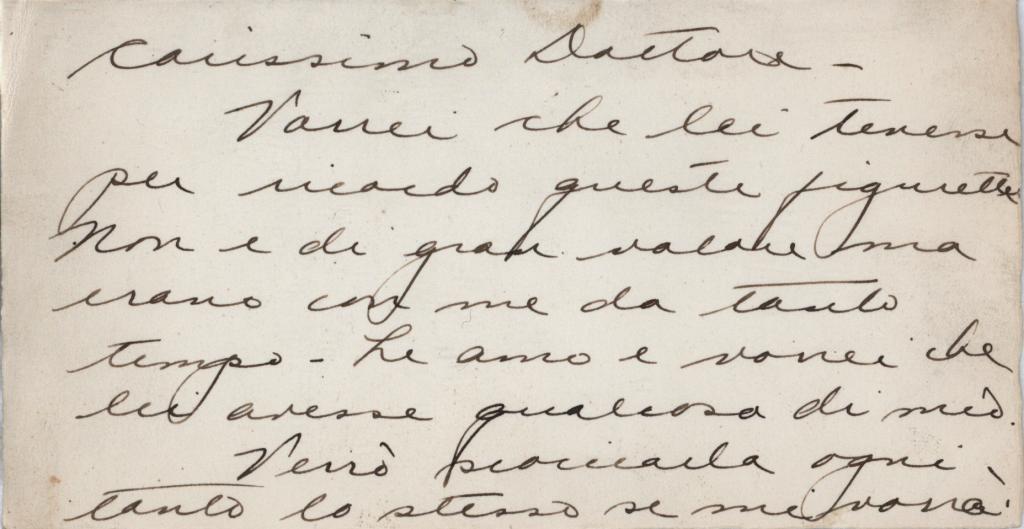 Carissimo Dottore -
Vorrei che lei tenesse
per ricordo queste figurette
Non e di gran valore ma
erano con me da tanto
tempo - Le amo e vorrei che
lei avesse qualcosa di mio.
Verrò ogni
tanto lo stesso se mi vorrà.